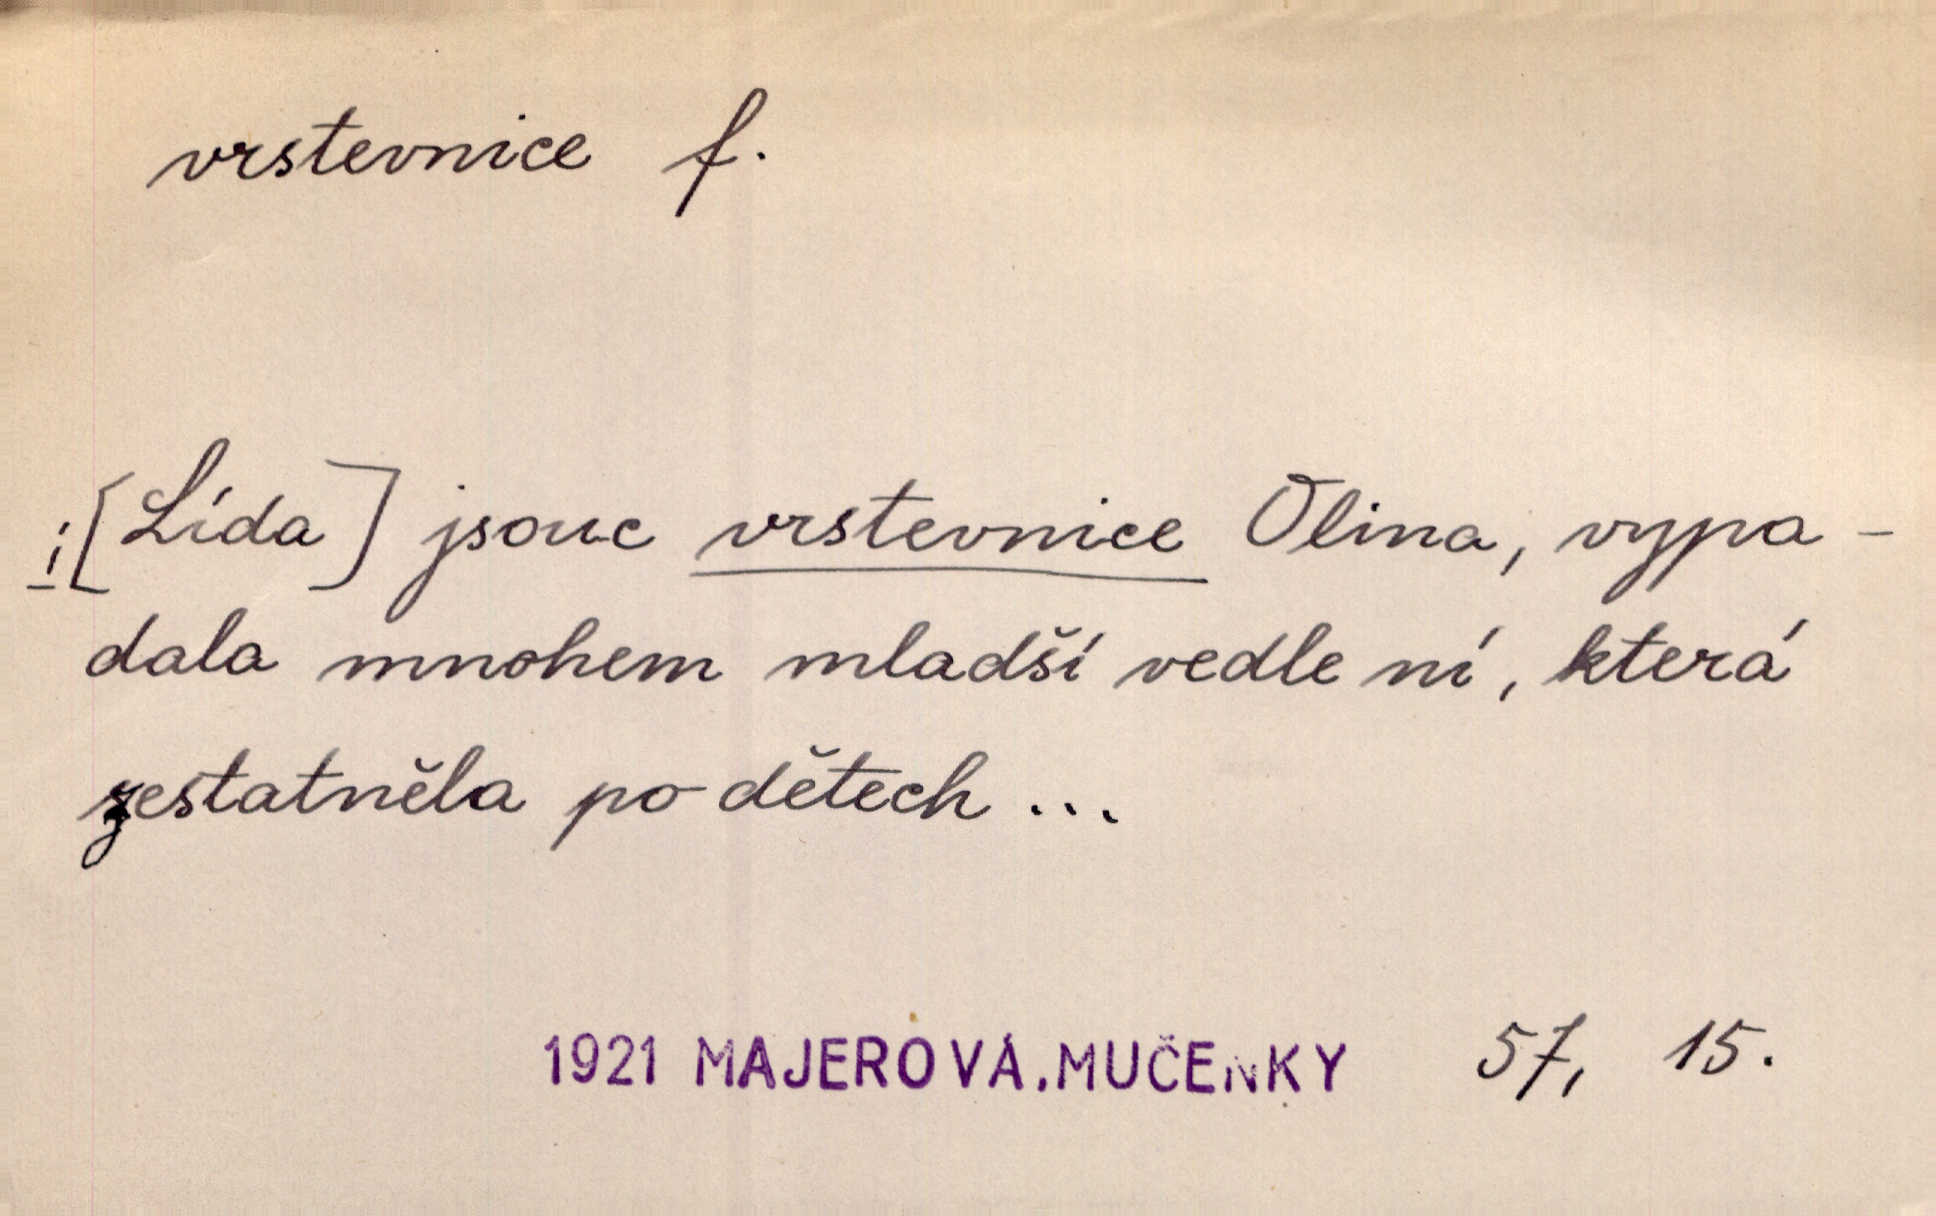 vrstevnice f.
i [Lída] jsouc vrstevnice Olina, vypa-
dala mnohem mladší vedle ní, která
zestatněla po dětech ...
1921 MAJEROVÁ.MUČENKY 57, 15.